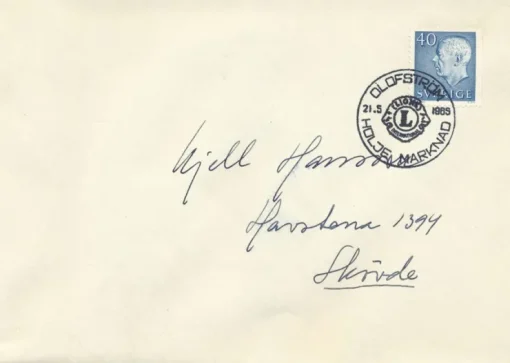 40
SVERIGE
OLOFSTRÖM
21.5 1965
LIONS
L
INTERNATIONAL
HOLJEMARKNAD
Kjell Hansson
Havstena 1394
Skövde